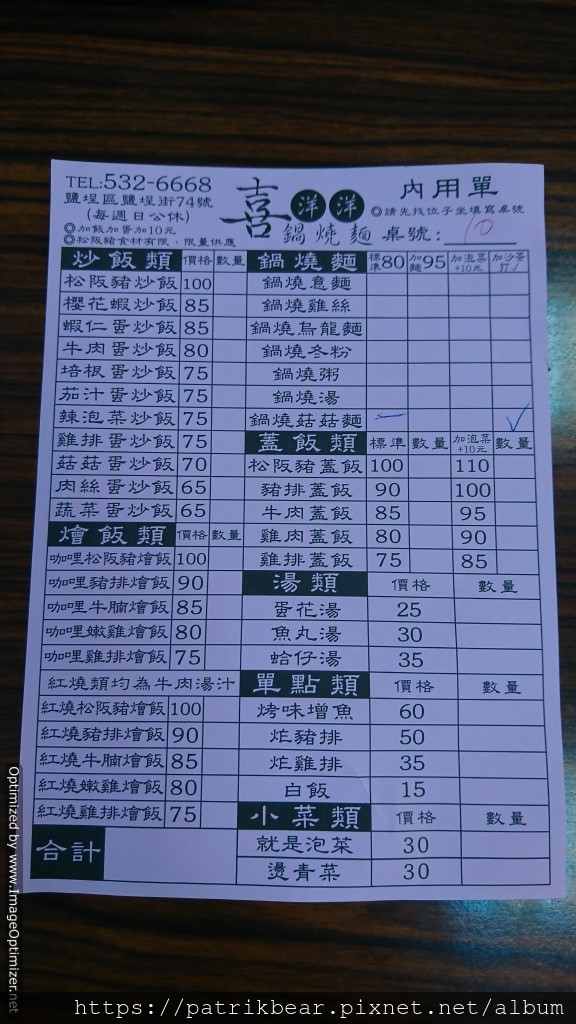 TEL:532-6668
鹽埕區鹽埕街74號
(每週日公休)
◎加飯加麥加10元
◎松阪豬食材有限﹐限量供應
喜洋洋
鍋燒麵
內用單
◎請先找位子坐填寫桌號
桌號: 10
炒飯類 價格 數量
松阪豬炒飯 100
櫻花蝦炒飯 85
蝦仁蛋炒飯 85
牛肉蛋炒飯 80
培根蛋炒飯 75
茄汁蛋炒飯 75
辣泡菜炒飯 75
雞排蛋炒飯 75
菇菇蛋炒飯 70
肉絲蛋炒飯 65
蔬菜蛋炒飯 65
燴飯類 價格 數量
咖哩松阪豬燴飯 100
咖哩豬排燴飯 90
咖哩牛腩燴飯 85
咖哩嫩雞燴飯 80
咖哩雞排燴飯 75
紅燒類均為牛肉湯汁
紅燒松阪豬燴飯 100
紅燒豬排燴飯 90
紅燒牛腩燴飯 85
紅燒嫩雞燴飯 80
紅燒雞排燴飯 75
合計
鍋燒麵 標準80 加麵95 加泡菜+10元 加沙茶打✓
鍋燒意麵
鍋燒雞絲
鍋燒烏龍麵
鍋燒冬粉
鍋燒粥
鍋燒湯
鍋燒菇菇麵 一 ✓
蓋飯類 標準 數量 加泡菜+10元 數量
松阪豬蓋飯 100 110
豬排蓋飯 90 100
牛肉蓋飯 85 95
雞肉蓋飯 80 90
雞排蓋飯 75 85
湯類 價格 數量
蛋花湯 25
魚丸湯 30
蛤仔湯 35
單點類 價格 數量
烤味增魚 60
炸豬排 50
炸雞排 35
白飯 15
小菜類 價格 數量
就是泡菜 30
燙青菜 30
Optimized by www.ImageOptimizer.net
https://patrikbear.pixnet.net/album